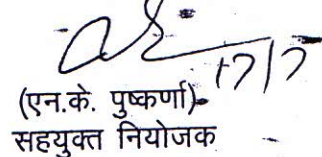 17/7
(एन.के. पुष्कर्णा)
सहयुक्त नियोजक